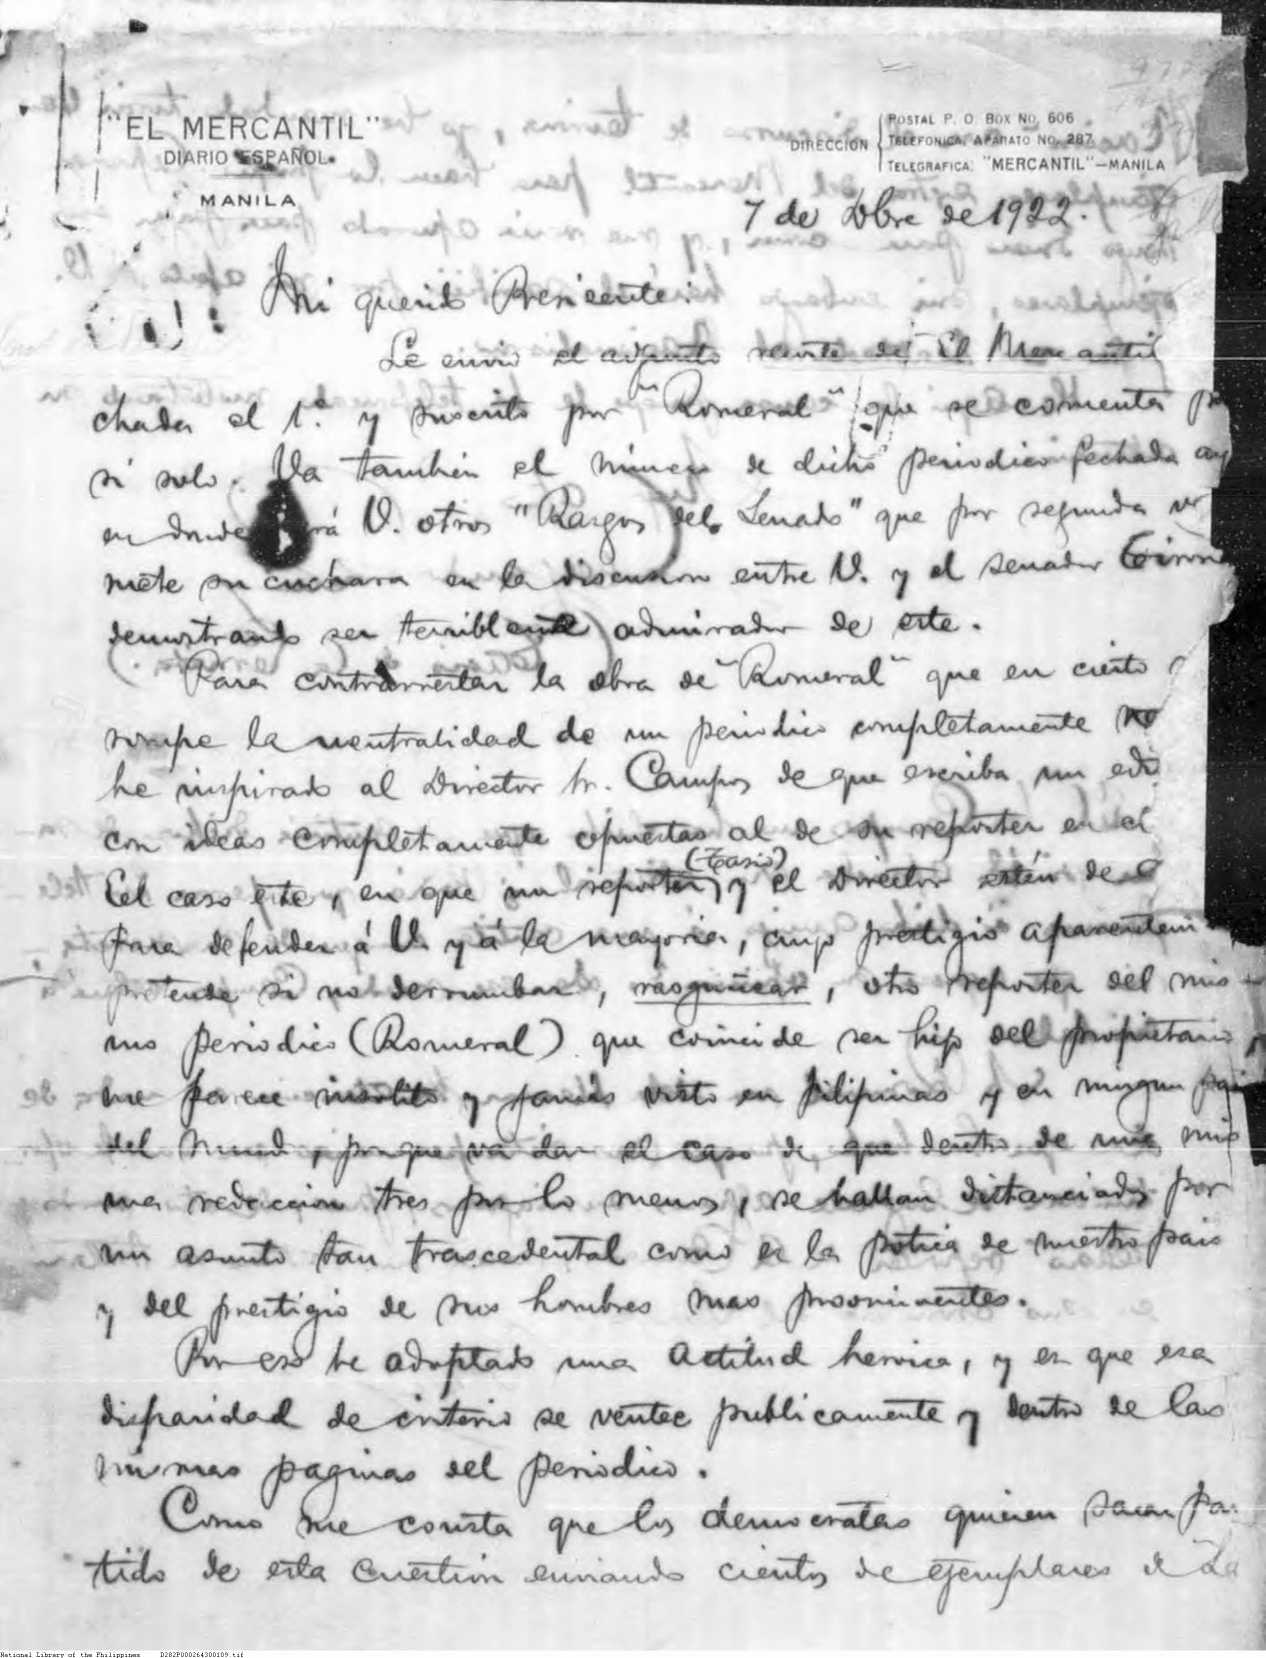 "EL MERCANTIL"
DIARIO ESPAÑOL.
MANILA
DIRECCION
POSTAL P. O. BOX NO. 606
TELEFONICA, APARATO NO. 287
TELEGRAFICA: "MERCANTIL"—MANILA
7 de Dbre de 1922.
Mi querido Presidente:
Le envio el adjunto recorte de El Mercantil
chada el 1.° y suscrito por "Romeral" que se comenta por
si solo. Va tambien el número de dicho periodico fechada ay
en donde rá V. otros "Rasgos del Senado" que por segunda ve
mete su cuchara en la discusion entre V. y el senador Tirona
demostrando ser terriblemente admirador de este.
Para contrarrestar la obra de "Romeral" que en cierto
rompe la neutralidad de un periodico completamente
he inspirado al Director Sr. Campos de que escriba un edi
con ideas completamente opuestas al de su reporter en el
El caso este, en que un reporter (Tasio) y el Director estén de
para defender á V. y á la mayoria, cuyo prestigio aparentem
pretende si no derrumbar, rasguñear, otro reporter del mis-
mo periodico (Romeral) que coincide ser hijo del propietario,
me parece insolito y jamás visto en Filipinas y en ningun pais
del mundo, porque va dar el caso de que dentro de una mis
ma redaccion tres por lo menos, se hallan distanciados por
un asunto tan trascedental como es la potica de nuestro pais
y del prestigio de sus hombres mas prominentes.
Por eso he adoptado una actitud heroica, y es que esa
disparidad de criterio se ventee publicamente y dentro de las
mismas paginas del periodico.
Como me consta que los democratas quieren sacar par
tido de esta cuestion enviando cientos de ejemplares de La
National Library of the Philippines D282P000264300109.tif